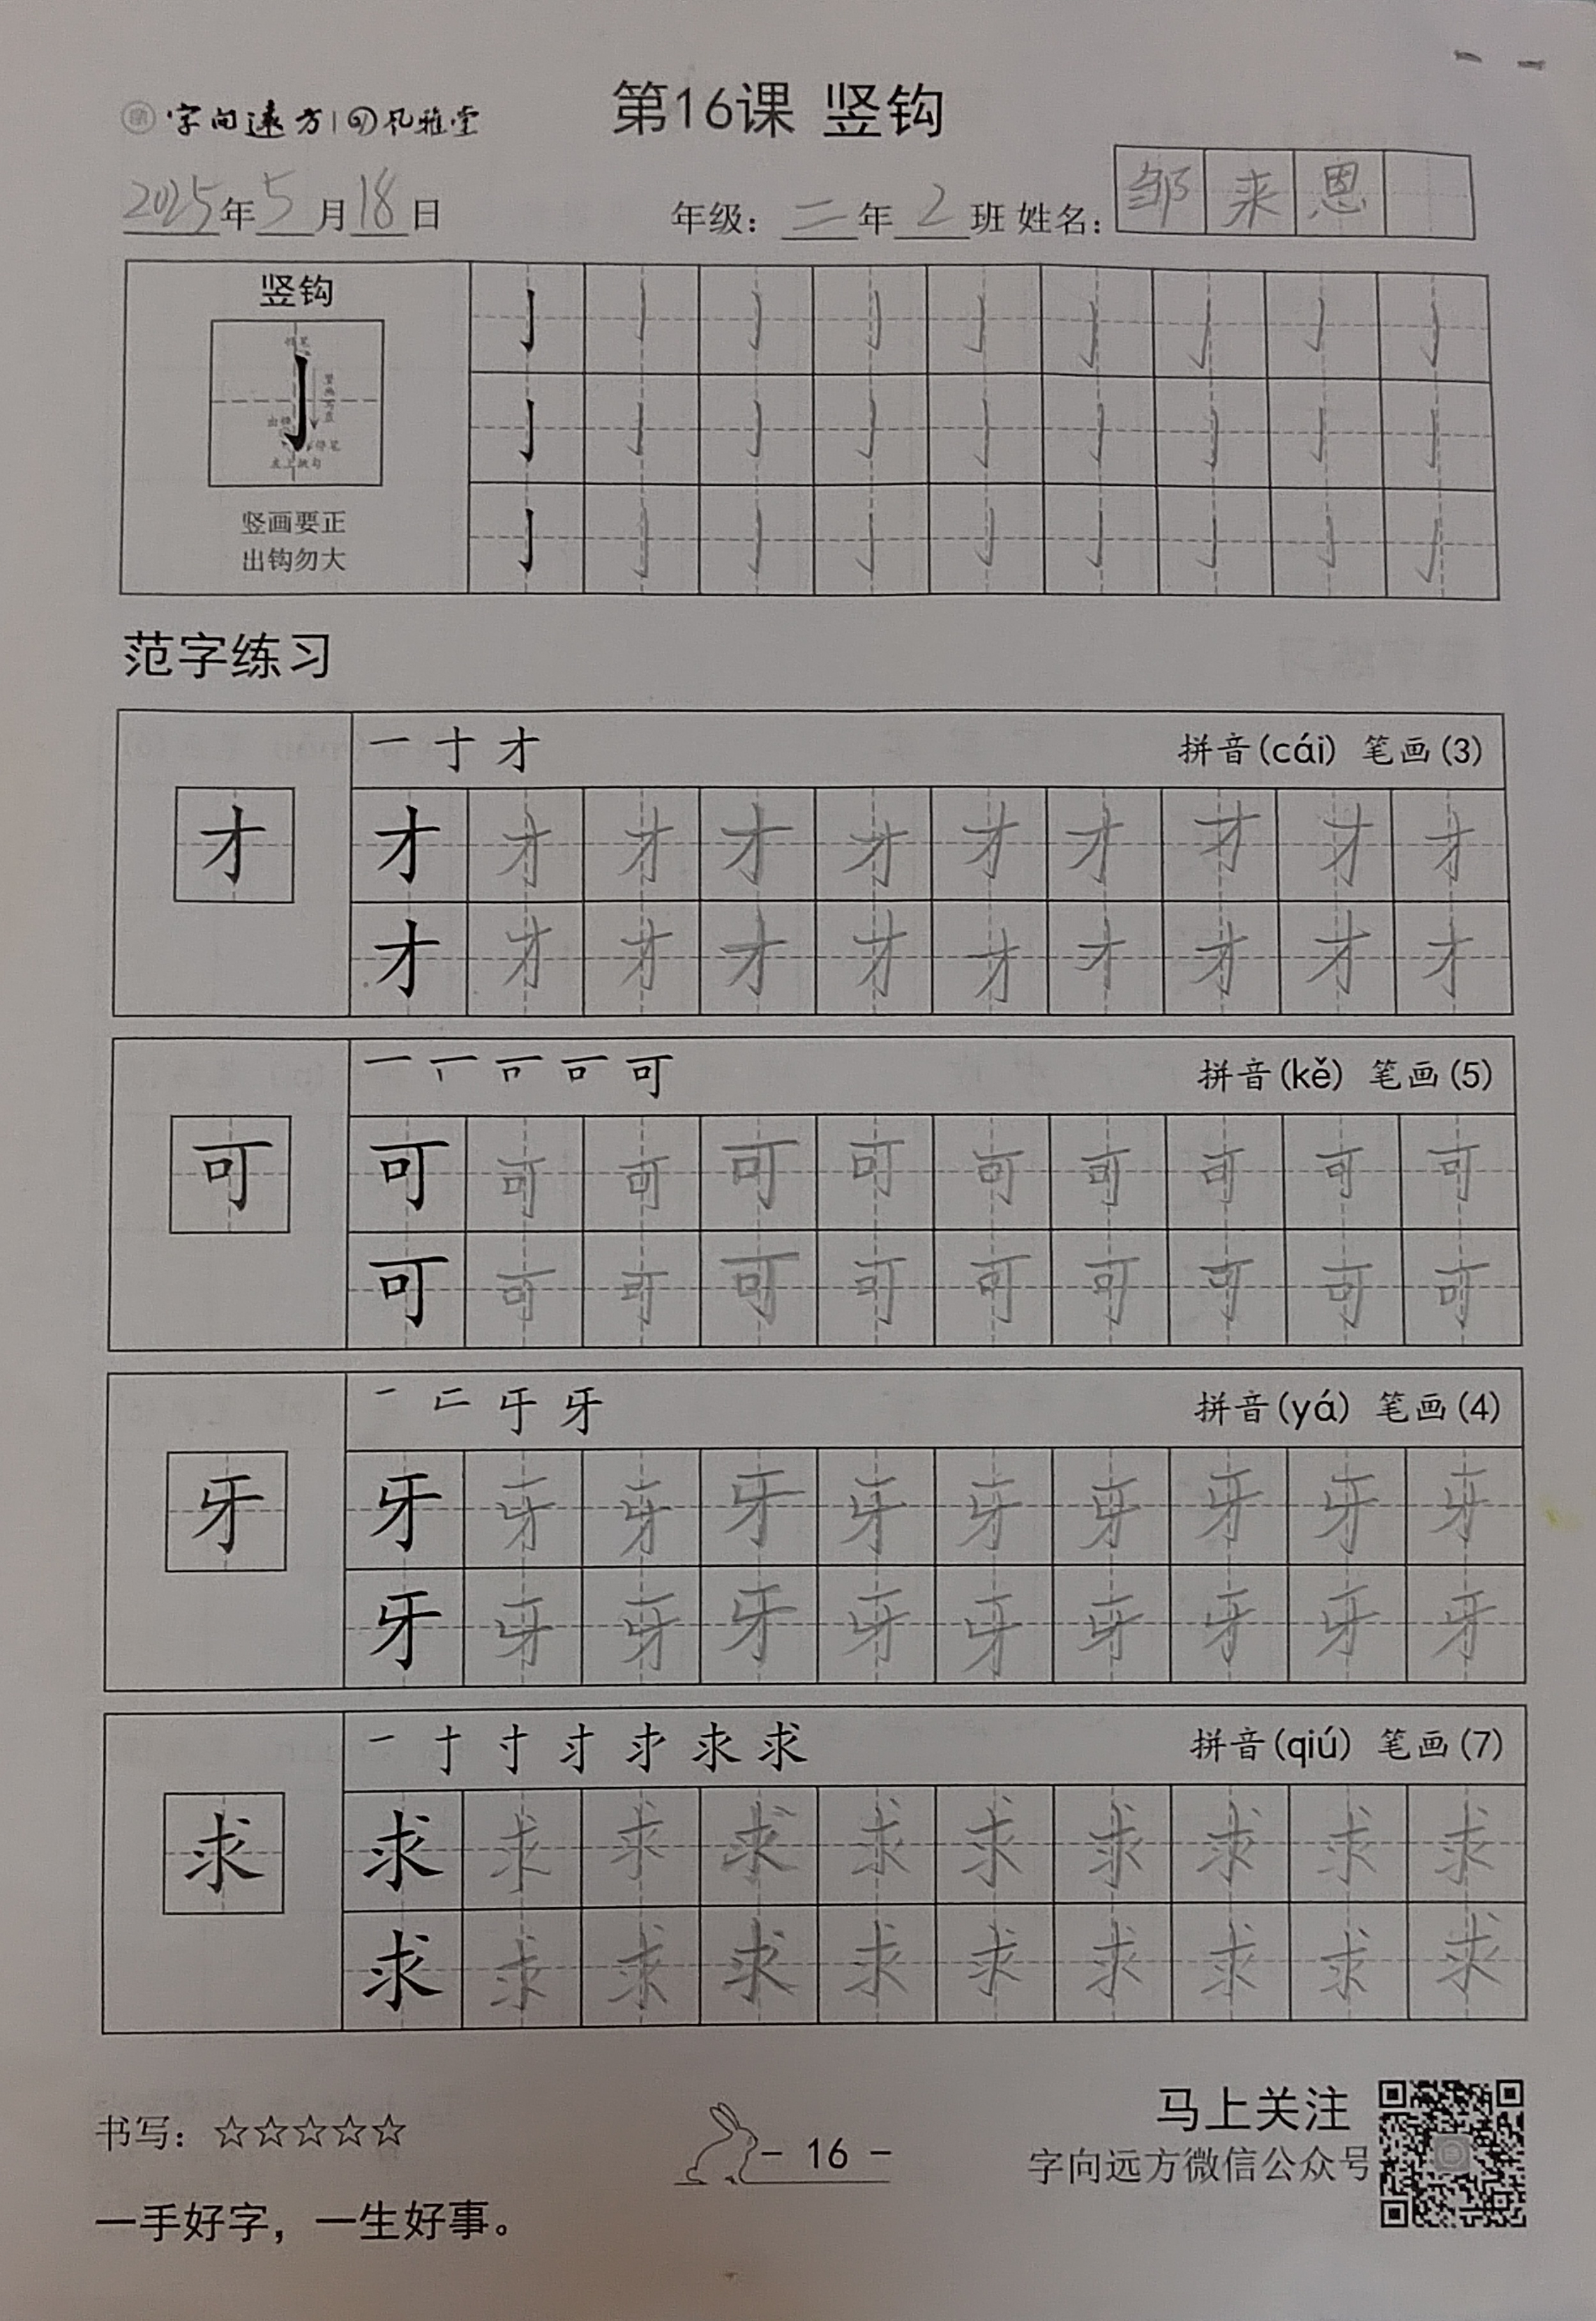 字向远方 风雅堂
第16课 竖钩
2025年5月18日 年级：二年2班 姓名：邹来恩
竖钩
竖画要正
出钩勿大
范字练习
一 十 才 拼音(cái) 笔画(3)
才 才 才 才 才 才 才 才 才 才 才
才 才 才 才 才 才 才 才 才 才
拼音(kě) 笔画(5)
可 可 可 可 可 可 可 可 可 可 可
可 可 可 可 可 可 可 可 可 可
牙 拼音(yá) 笔画(4)
牙 牙 牙 牙 牙 牙 牙 牙 牙 牙 牙
牙 牙 牙 牙 牙 牙 牙 牙 牙 牙
求 拼音(qiú) 笔画(7)
求 求 求 求 求 求 求 求 求 求 求
求 求 求 求 求 求 求 求 求 求
书写：☆☆☆☆☆
- 16 -
马上关注
字向远方微信公众号
一手好字，一生好事。